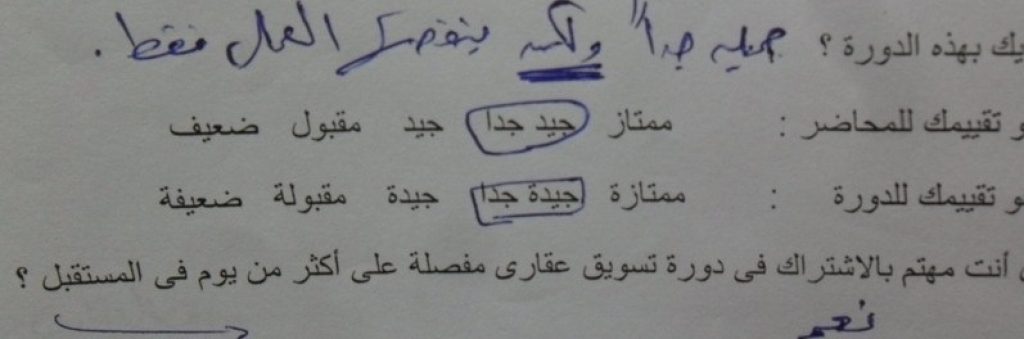 يك بهذه الدورة ؟ جميله جداً ولكن ينقصها العمل فقط .
و تقييمك للمحاضر : ممتاز جيد جدا جيد مقبول ضعيف
و تقييمك للدورة : ممتازة جيدة جدا جيدة مقبولة ضعيفة
أنت مهتم بالاشتراك فى دورة تسويق عقارى مفصلة على أكثر من يوم فى المستقبل ؟
نعم